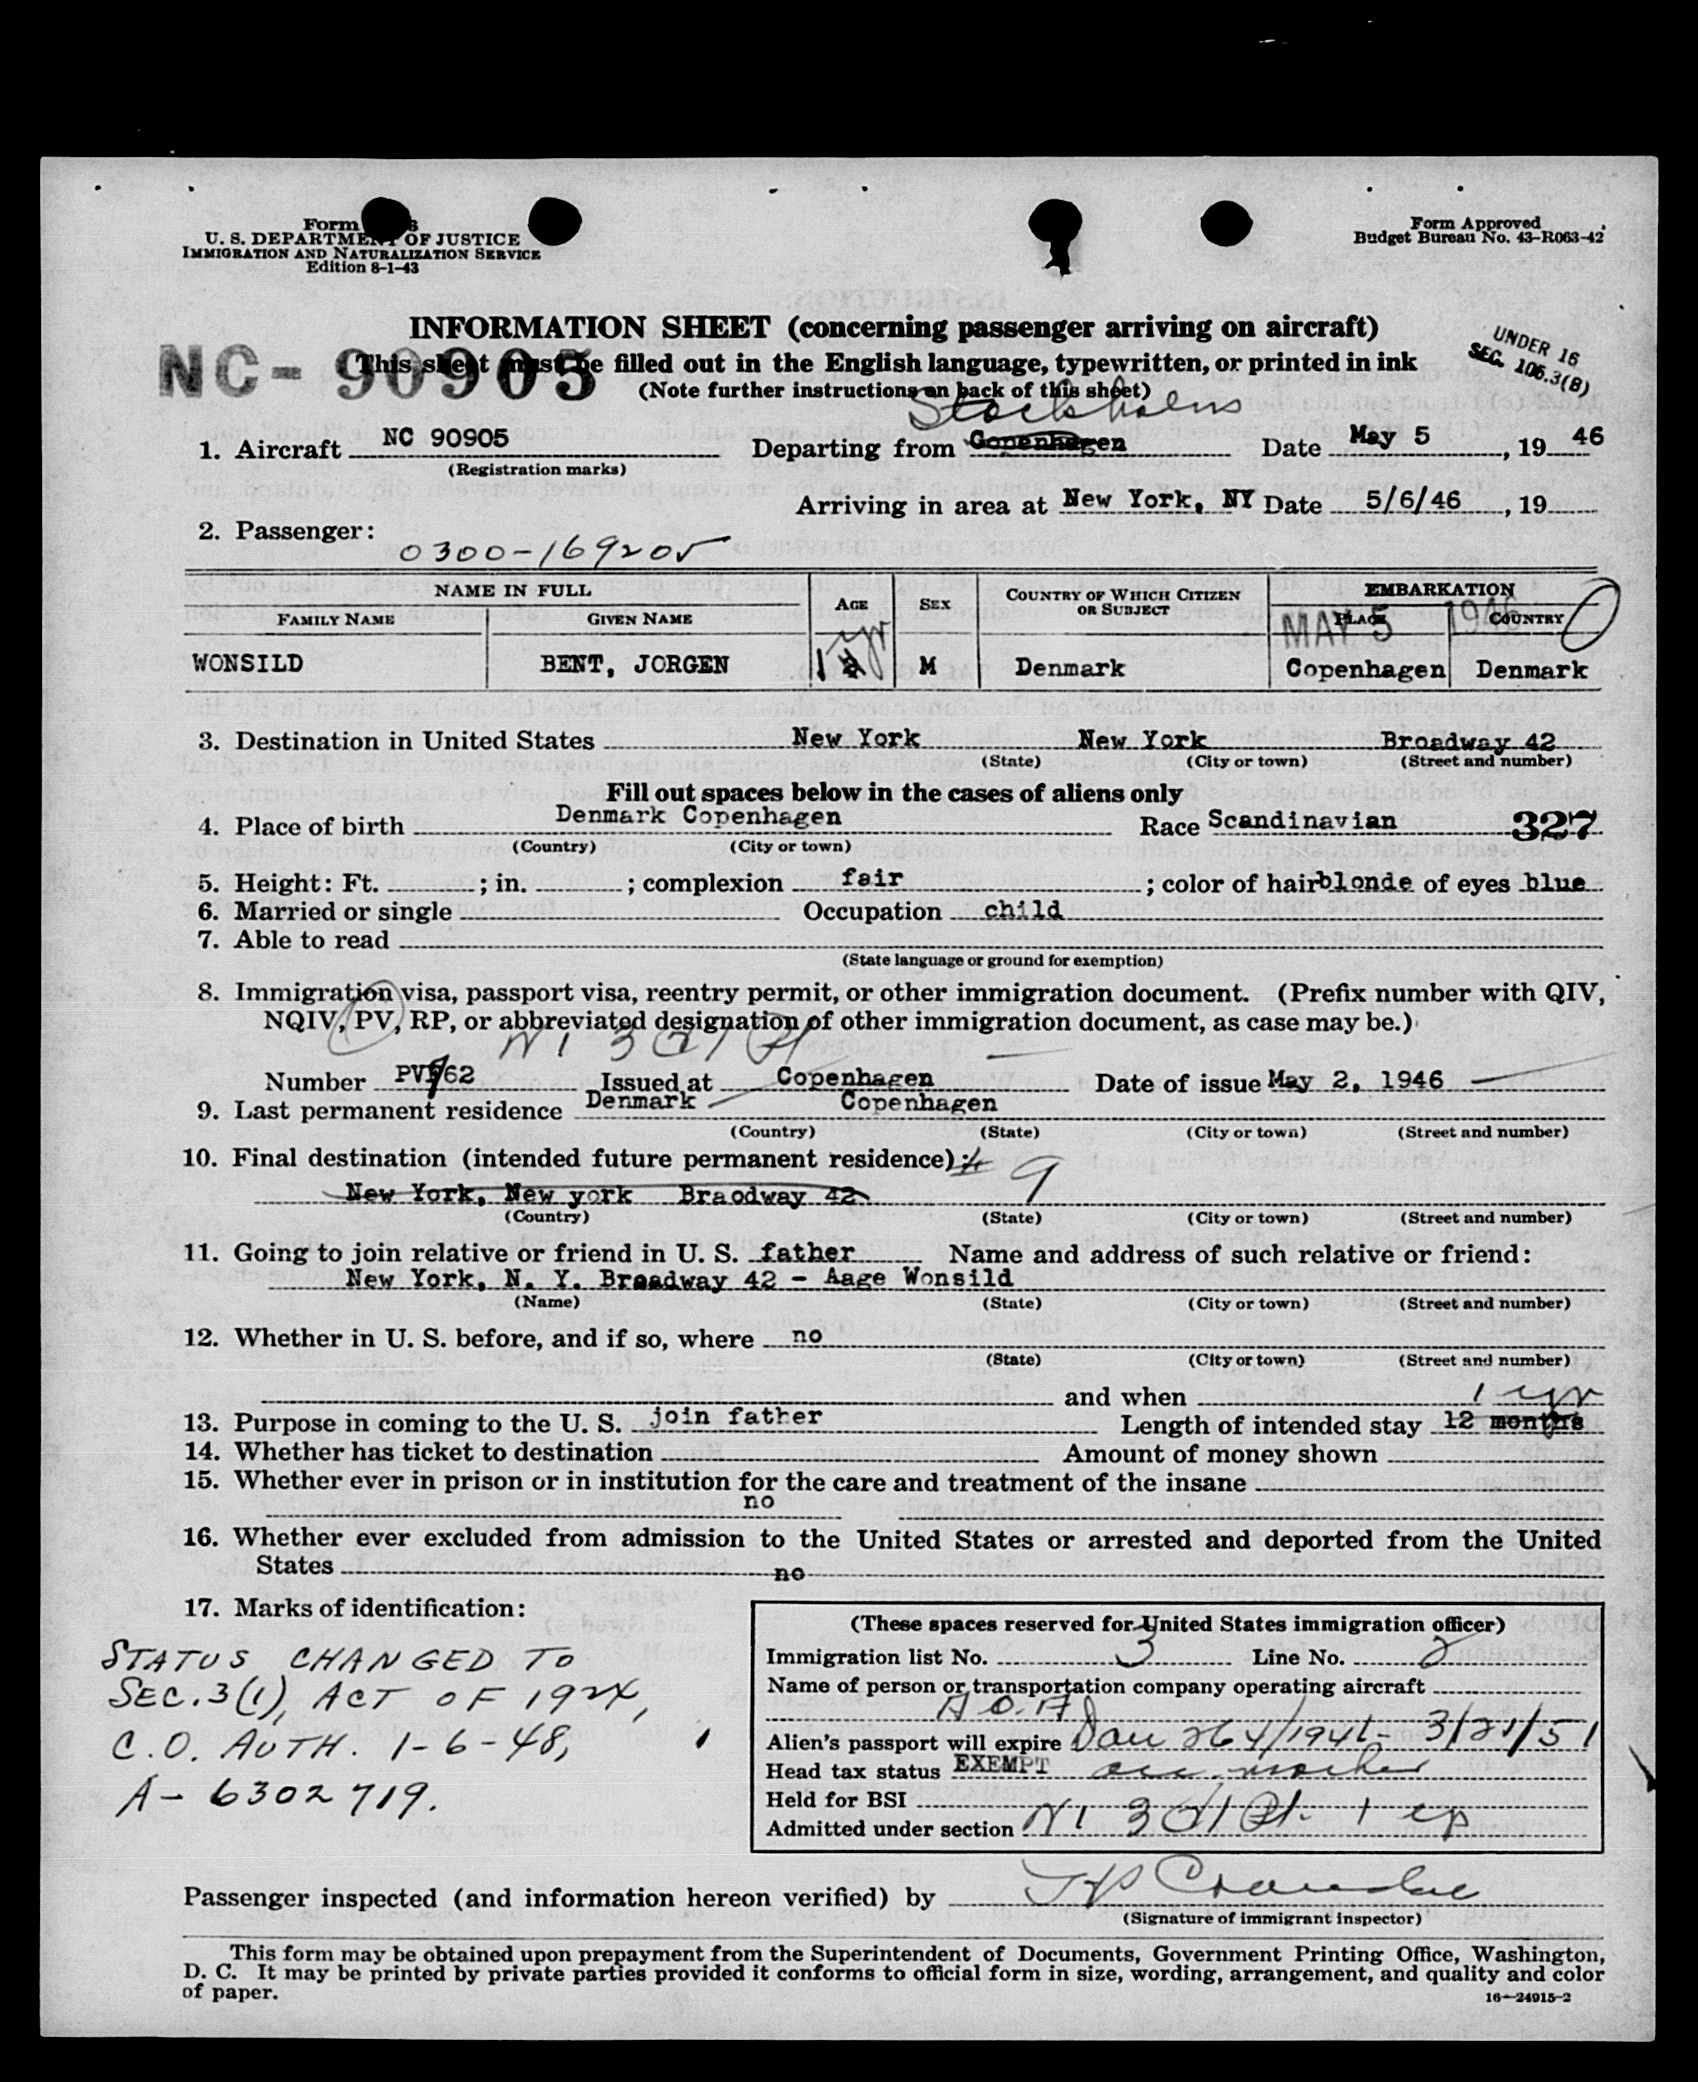 Form
U. S. DEPARTMENT OF JUSTICE
IMMIGRATION AND NATURALIZATION SERVICE
Edition 8-1-43
Form Approved
Budget Bureau No. 43-R063-42
INFORMATION SHEET (concerning passenger arriving on aircraft)
UNDER 16
SEC. 106.3(B)
NC-90905
This sheet must be filled out in the English language, typewritten, or printed in ink
(Note further instructions on back of this sheet)
Stockholm
1. Aircraft NC 90905 Departing from Copenhagen Date May 5, 19 46
(Registration marks)
Arriving in area at New York, NY Date 5/6/46, 19
2. Passenger:
0300-169205
NAME IN FULL AGE SEX COUNTRY OF WHICH CITIZEN OR SUBJECT EMBARKATION
FAMILY NAME GIVEN NAME PLACE COUNTRY
MAY 5 1946 0
WONSILD BENT, JORGEN 1 yr M Denmark Copenhagen Denmark
3. Destination in United States New York New York Broadway 42
(State) (City or town) (Street and number)
Fill out spaces below in the cases of aliens only
4. Place of birth Denmark Copenhagen Race Scandinavian 327
(Country) (City or town)
5. Height: Ft. ; in. ; complexion fair ; color of hair blonde of eyes blue
6. Married or single Occupation child
7. Able to read
(State language or ground for exemption)
8. Immigration visa, passport visa, reentry permit, or other immigration document. (Prefix number with QIV,
NQIV, PV, RP, or abbreviated designation of other immigration document, as case may be.)
Number PV 762 Issued at Copenhagen Date of issue May 2, 1946
9. Last permanent residence Denmark Copenhagen
(Country) (State) (City or town) (Street and number)
10. Final destination (intended future permanent residence): # 9
New York, New york Braodway 42
(Country) (State) (City or town) (Street and number)
11. Going to join relative or friend in U. S. father Name and address of such relative or friend:
New York, N. Y. Broadway 42 - Aage Wonsild
(Name) (State) (City or town) (Street and number)
12. Whether in U. S. before, and if so, where no
(State) (City or town) (Street and number)
and when
1 yr
13. Purpose in coming to the U. S. join father Length of intended stay 12 months
14. Whether has ticket to destination Amount of money shown
15. Whether ever in prison or in institution for the care and treatment of the insane
no
16. Whether ever excluded from admission to the United States or arrested and deported from the United
States no
17. Marks of identification:
STATUS CHANGED TO
SEC. 3(1), ACT OF 1924,
C.O. AUTH. 1-6-48,
A- 6302719.
(These spaces reserved for United States immigration officer)
Immigration list No. 3 Line No. 2
Name of person or transportation company operating aircraft
A.O.A
Alien's passport will expire 3/21/51
Head tax status EXEMPT acc. mother
Held for BSI
Admitted under section
Passenger inspected (and information hereon verified) by
(Signature of immigrant inspector)
This form may be obtained upon prepayment from the Superintendent of Documents, Government Printing Office, Washington,
D. C. It may be printed by private parties provided it conforms to official form in size, wording, arrangement, and quality and color
of paper.
16—24915-2